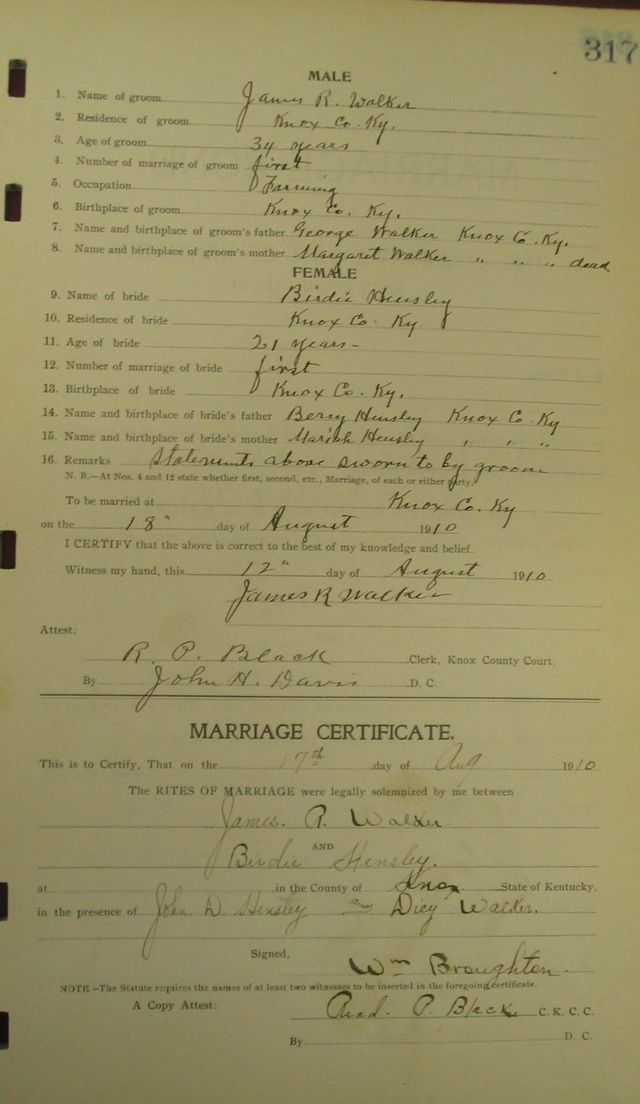 317
MALE
1. Name of groom James R. Walker
2. Residence of groom Knox Co. Ky.
3. Age of groom 34 years
4. Number of marriage of groom first
5. Occupation Farming
6. Birthplace of groom Knox Co. Ky.
7. Name and birthplace of groom's father George Walker Knox Co. Ky.
8. Name and birthplace of groom's mother Margaret Walker " " " dead
FEMALE
9. Name of bride Birdie Hensley
10. Residence of bride Knox Co. Ky
11. Age of bride 21 years-
12. Number of marriage of bride first
13. Birthplace of bride Knox Co. Ky.
14. Name and birthplace of bride's father Berry Hensley Knox Co. Ky
15. Name and birthplace of bride's mother Mariah Hensley " " "
16. Remarks Statements above sworn to by groom
N. B.—At Nos. 4 and 12 state whether first, second, etc., Marriage, of each or either party.
To be married at Knox Co. Ky
on the 18" day of August 1910
I CERTIFY that the above is correct to the best of my knowledge and belief.
Witness my hand, this 12" day of August 1910
James R Walker
Attest:
R. P. Black Clerk, Knox County Court,
By John H. Davis D. C.
MARRIAGE CERTIFICATE.
This is to Certify, That on the 17th day of Aug 1910
The RITES OF MARRIAGE were legally solemnized by me between
James. R. Walker
AND
Birdie Hensley.
at in the County of Knox State of Kentucky,
in the presence of John D Hensley and Dicy Walker.
Signed,
Wm Broughton.
NOTE—The Statute requires the names of at least two witnesses to be inserted in the foregoing certificate.
A Copy Attest: Read. P. Black C. K. C. C.
By D. C.